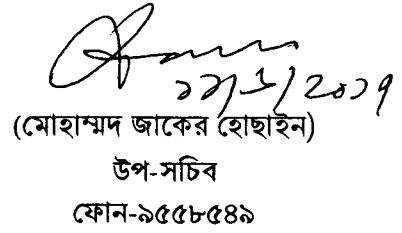 (মোহাম্মদ জাকের হোছাইন)
উপ-সচিব
ফোন-৯৫৫৮৫৪৯